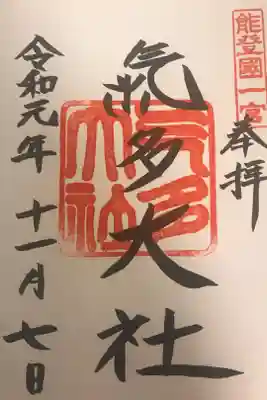 能登國一宮
奉拝
氣多大社
氣多大社
令和元年十一月七日